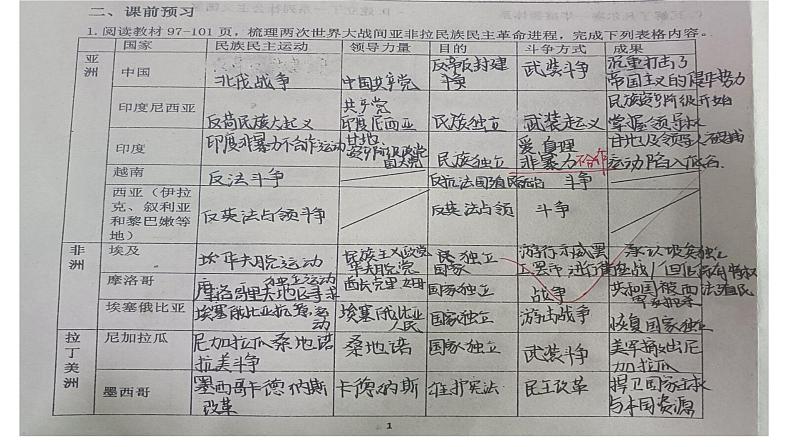 二、课前预习
1.阅读教材97-101页，梳理两次世界大战间亚非拉民族民主革命进程，完成下列表格内容。
国家 民族民主运动 领导力量 目的 斗争方式 成果
亚洲
中国 北伐战争 中国共产党 反帝反封建斗争 武装斗争 沉重打击了帝国主义的侵华势力
印度尼西亚 反荷民族大起义 共产党 印度尼西亚 民族独立 武装起义 民族资产阶级开始掌握领导权
印度 印度非暴力不合作运动 甘地 资产阶级政党国大党 民族独立 爱、真理 非暴力不合作 甘地及领导人被捕 运动陷入低谷
越南 反法斗争 斗争
西亚（伊拉克、叙利亚和黎巴嫩等地） 反英法占领斗争 反英法占领 斗争
非洲
埃及 埃华夫脱运动 民族主义政党 华夫脱党 民独立 国家 游行示威罢工罢市
摩洛哥 国家独立 战争
埃塞俄比亚 埃塞俄比亚人民 国家独立 游击战争 恢复国家独立
拉丁美洲
尼加拉瓜 尼加拉瓜桑地诺抗美斗争 桑地诺 国家独立 武装斗争 美军撤出尼加拉瓜
墨西哥 墨西哥卡德纳斯改革 卡德纳斯 维护宪法 民主改革 捍卫国家主权与本国资源
1